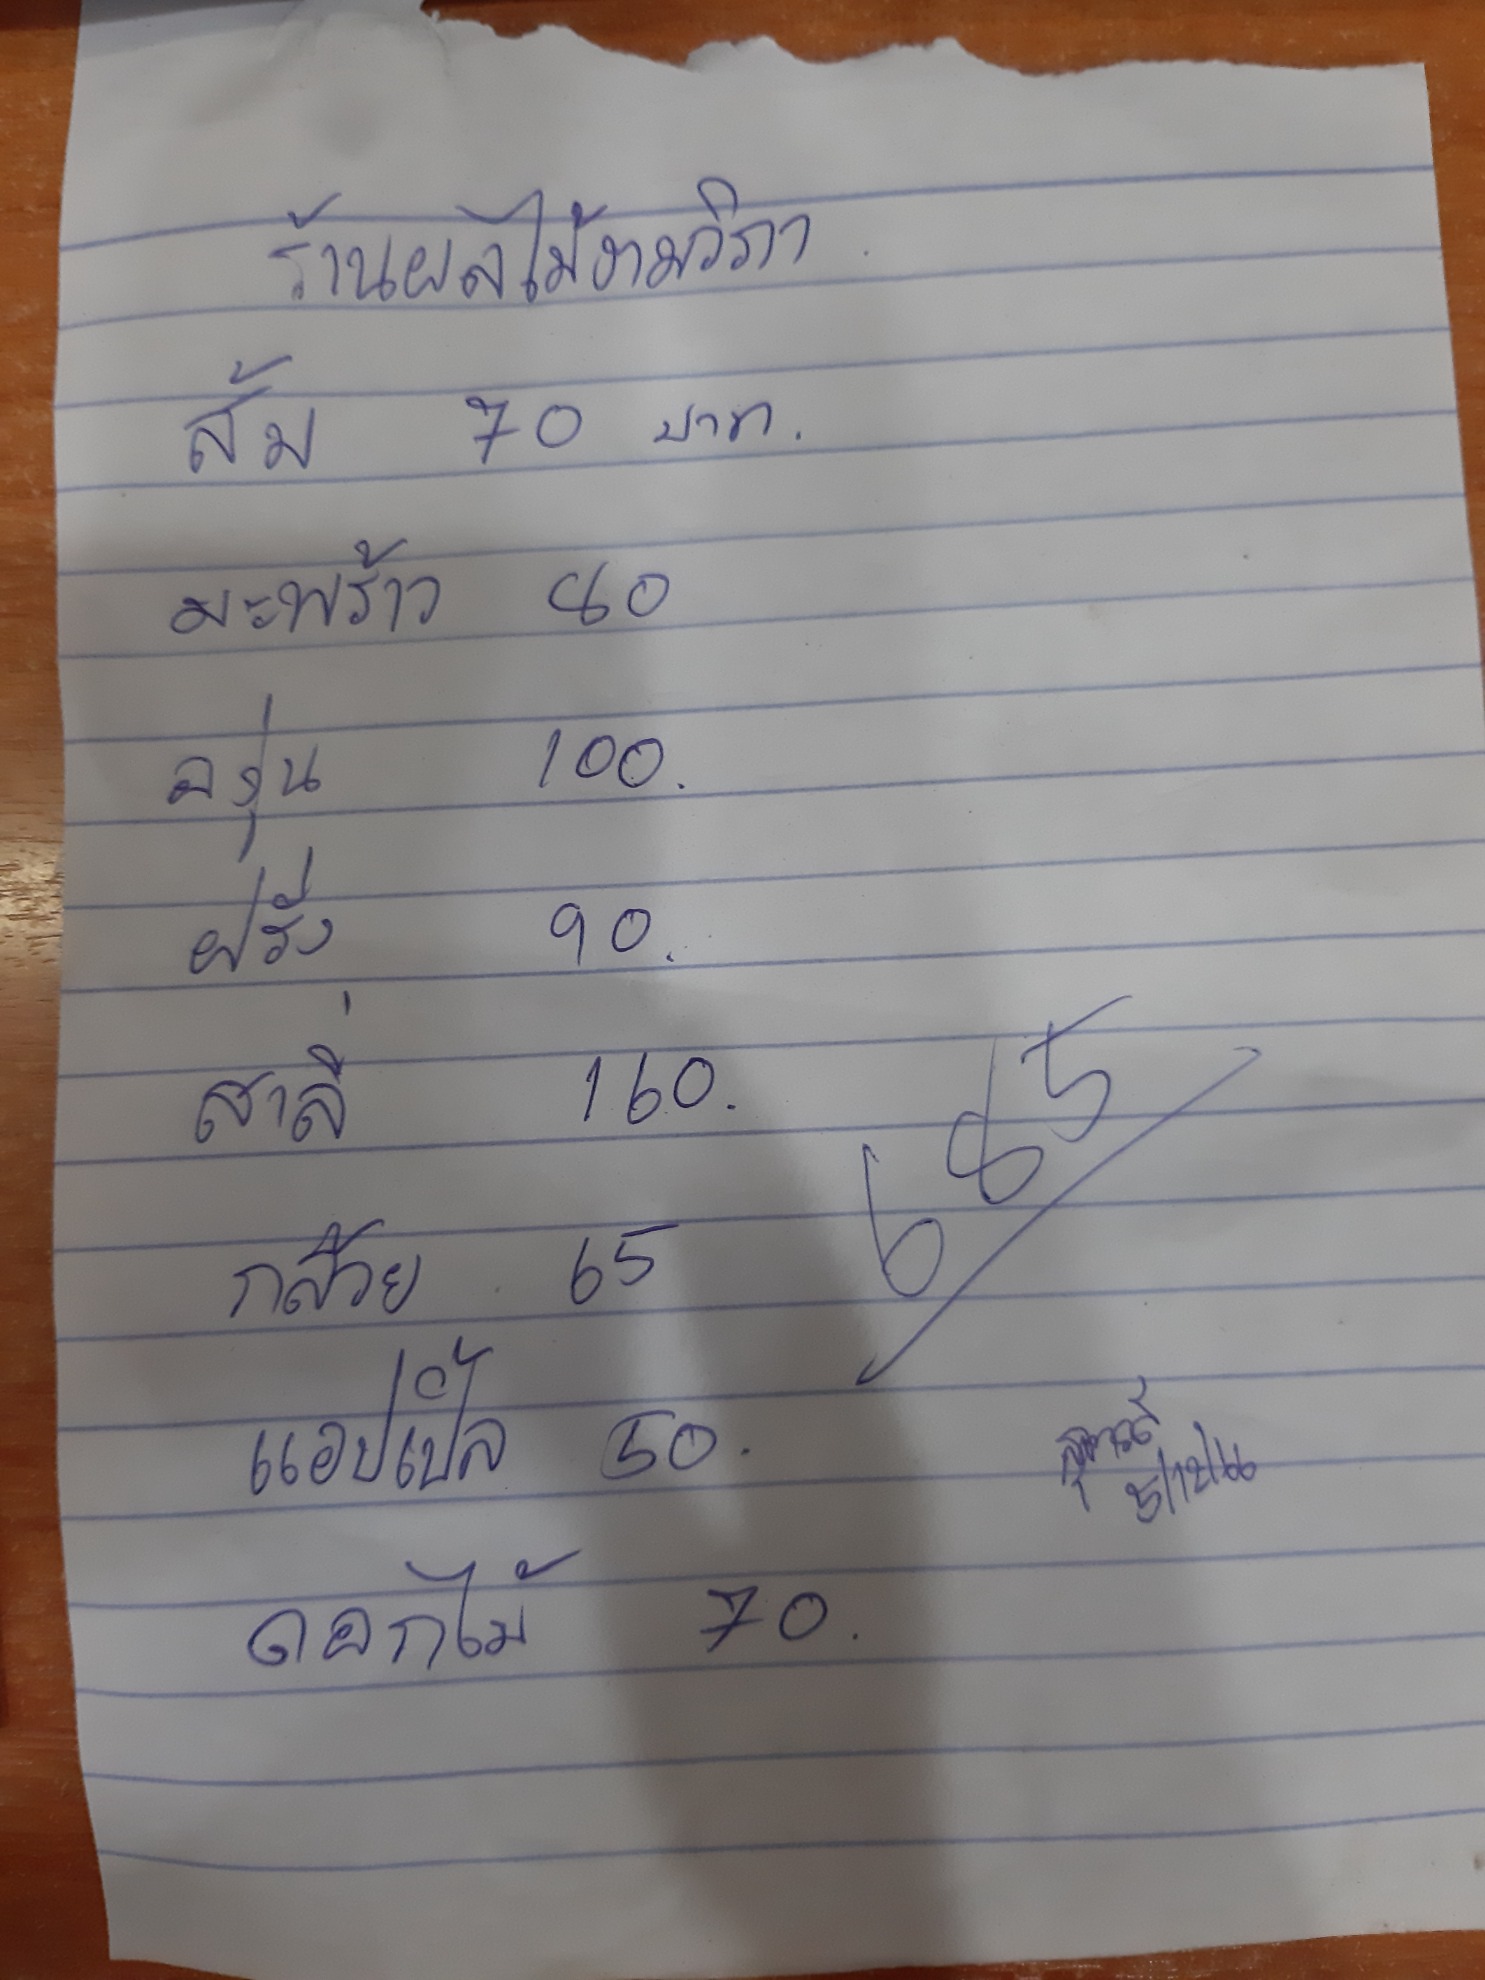 ร้านผลไม้
ส้ม 70 บาท.
มะพร้าว 80
องุ่น 100.
ฝรั่ง 90.
สาลี่ 160.
685
กล้วย 65
แอปเปิ้ล 50.
ดอกไม้ 70.